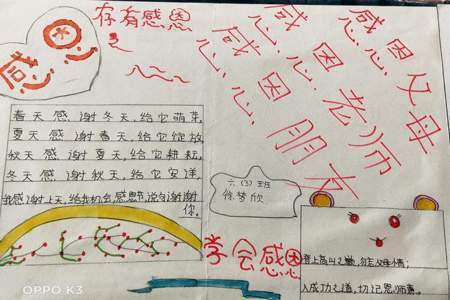 存有感恩
感恩
感恩父母
感恩老师
感恩朋友
春天感谢冬天,给它萌芽,
夏天感谢春天,给它绽放
秋天感谢夏天,给它耕耘,
冬天感谢秋天,给它安详,
我感谢上天,给我机会感恩,说句谢谢
你。
六(3)班
徐梦欣
学会感恩
入成功之道,切记恩师
OPPO K3